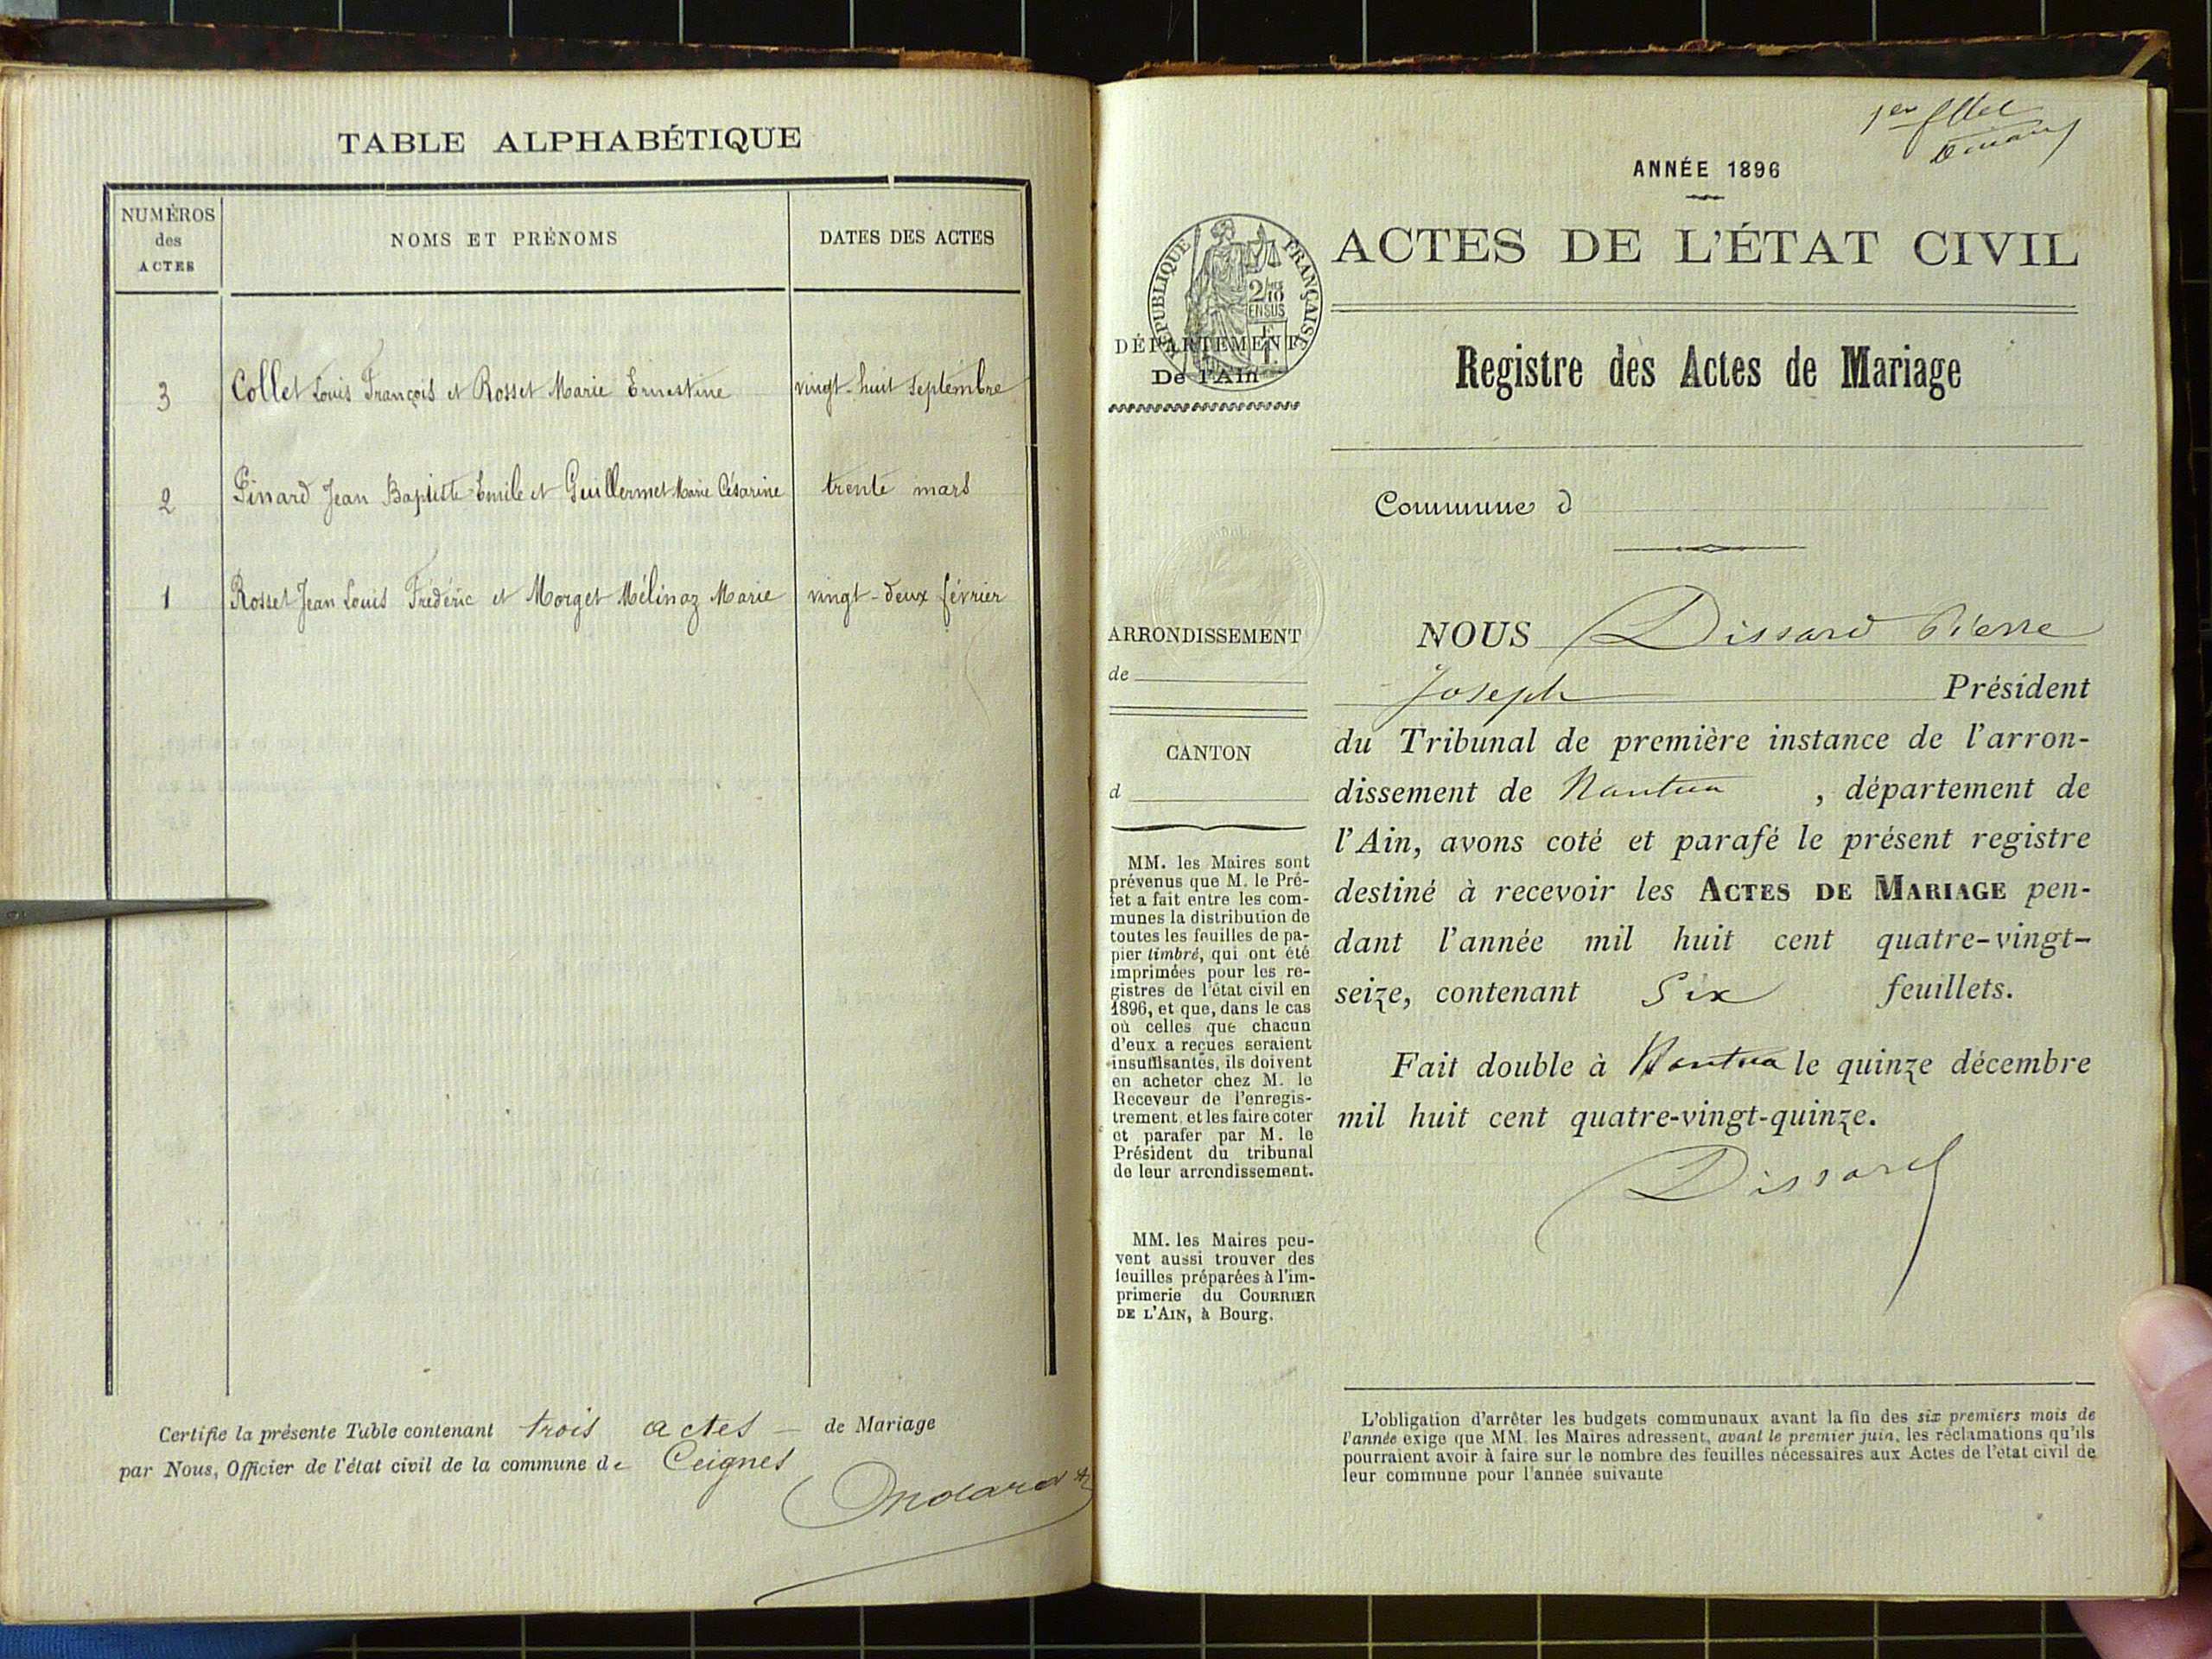 TABLE ALPHABÉTIQUE
NUMÉROS
des
ACTES
NOMS ET PRÉNOMS
DATES DES ACTES
3 Collet Louis François et Rosset Marie Ernestine vingt-huit Septembre
2 Pinard Jean Baptiste Emile et Guillermet Marie Césarine trente mars
1 Rosset Jean Louis Frédéric et Morget Mélinaz Marie vingt-deux février
Certifie la présente Table contenant trois actes de Mariage
par Nous, Officier de l'état civil de la commune de Ceignes
1er
ANNÉE 1896
ACTES DE L'ÉTAT CIVIL
RÉPUBLIQUE FRANÇAISE
2/10
EN SUS
DÉPARTEMENT
De l'Ain
Registre des Actes de Mariage
Commune d
ARRONDISSEMENT
de
CANTON
d
MM. les Maires sont
prévenus que M. le Pré-
fet a fait entre les com-
munes la distribution de
toutes les feuilles de pa-
pier timbré, qui ont été
imprimées pour les re-
gistres de l'état civil en
1896, et que, dans le cas
où celles que chacun
d'eux a reçues seraient
insuffisantes, ils doivent
en acheter chez M. le
Receveur de l'enregis-
trement, et les faire coter
et parafer par M. le
Président du tribunal
de leur arrondissement.
MM. les Maires peu-
vent aussi trouver des
feuilles préparées à l'im-
primerie du COURRIER
DE L'AIN, à Bourg.
NOUS Dissard Pierre
Joseph Président
du Tribunal de première instance de l'arron-
dissement de Nantua , département de
l'Ain, avons coté et parafé le présent registre
destiné à recevoir les ACTES DE MARIAGE pen-
dant l'année mil huit cent quatre-vingt-
seize, contenant Six feuillets.
Fait double à Nantua le quinze décembre
mil huit cent quatre-vingt-quinze.
Dissard
L'obligation d'arrêter les budgets communaux avant la fin des six premiers mois de
l'année exige que MM. les Maires adressent, avant le premier juin, les réclamations qu'ils
pourraient avoir à faire sur le nombre des feuilles nécessaires aux Actes de l'état civil de
leur commune pour l'année suivante